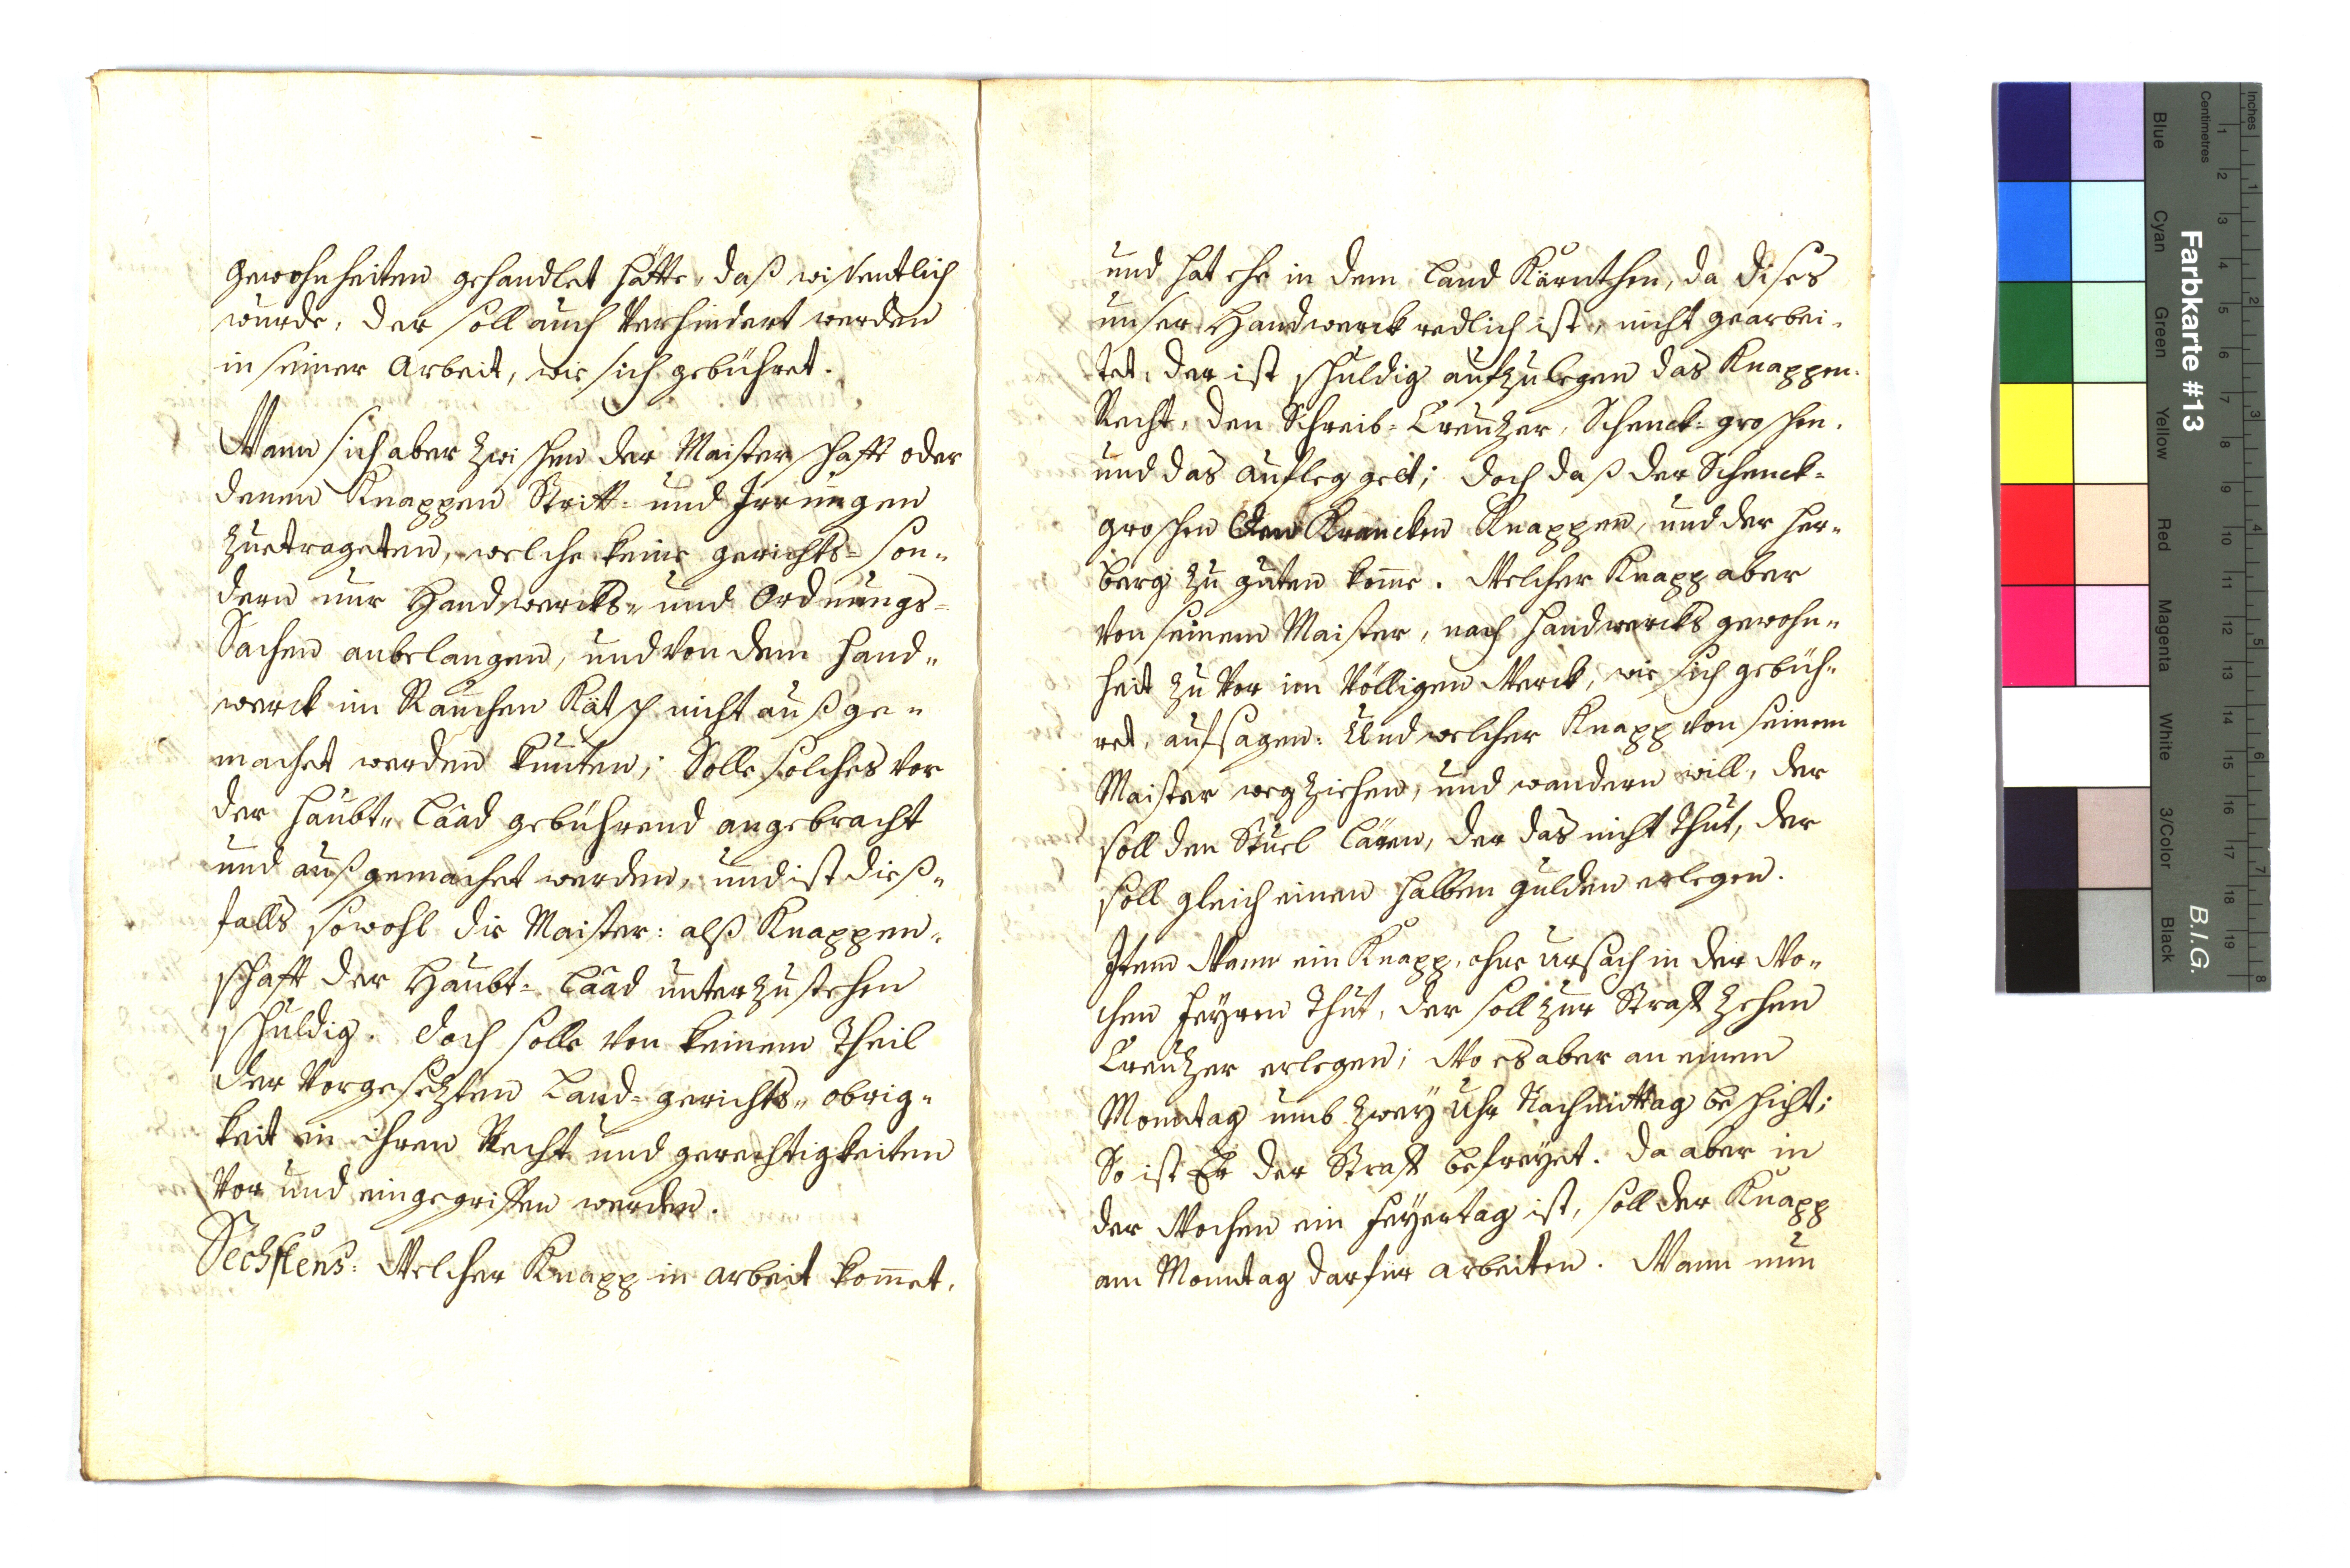 gewohnheiten gehandlet hätte, daß wissentlich
wurde, der soll auch verhindert werden
in seiner Arbeit, wie sich gebühret.
Wann sich aber zwischen der Maisterschafft oder
denen Knappen Stritt- und Irrungen
zuetrageten, welche keine gerichts- son-
dern nur Handwercks- und Ordnungs-
Sachen anbelangen, und von dem Hand-
werck im nicht außge-
machet werden kunten; Solle solches vor
der Haubt- Laad gebührend angebracht
und außgemachet werden, und ist dieß-
falls sowohl die Maister: alß Knappen-
schafft der Haubt- Laad unterzustehen
schuldig. doch solle von keinem Theil
der vorgesezten Land- gerichts- obrig-
keit in ihren Recht und gerechtigkeiten
vor und eingegriffen werden.
Sechstens: Welcher Knapp in arbeit kom̅et,
und hat ehe in dem Land Kärnthen, da dises
unser Handwerck redlich ist, nicht gearbei-
tet, der ist schuldig aufzulegen das Knappen-
Recht, den Schreib- Creuzer, Schenck- groschen,
und das aufleg gelt; doch daß der Schenck-
groschen den Krancken Knappen, und der Her-
berg zu guten kom̅e. Welcher Knapp aber
von seinem Maister, nach Handwercks gewohn-
heit zu vor im völligen Werck, wie sich gebüh-
ret, aufsagen: Und welcher Knapp von seinem
Maister wegziehen, und wandern will, der
soll den Stuel lären, der das nicht thut, der
soll gleich einen halben gulden erlegen.
Item Wann ein Knapp, ohne ursach in der Wo-
chen feyren thut, der soll zur Straff zehen
Creuzer erlegen; Wo es aber an einem
Monntag umb zwey Uhr Nachmittag beschicht;
So ist Er der Straff befreyet. da aber in
der Wochen ein feyertag ist, soll der Knapp
am Monntag darfür arbeiten. Wann nun
Farbkarte #13
B.I.G.
Inches
Centimetres
Blue
Cyan
Green
Yellow
Red
Magenta
White
3/Color
Black
1 2 3 4 5 6 7 8 9 10 11 12 13 14 15 16 17 18 19
1 2 3 4 5 6 7 8